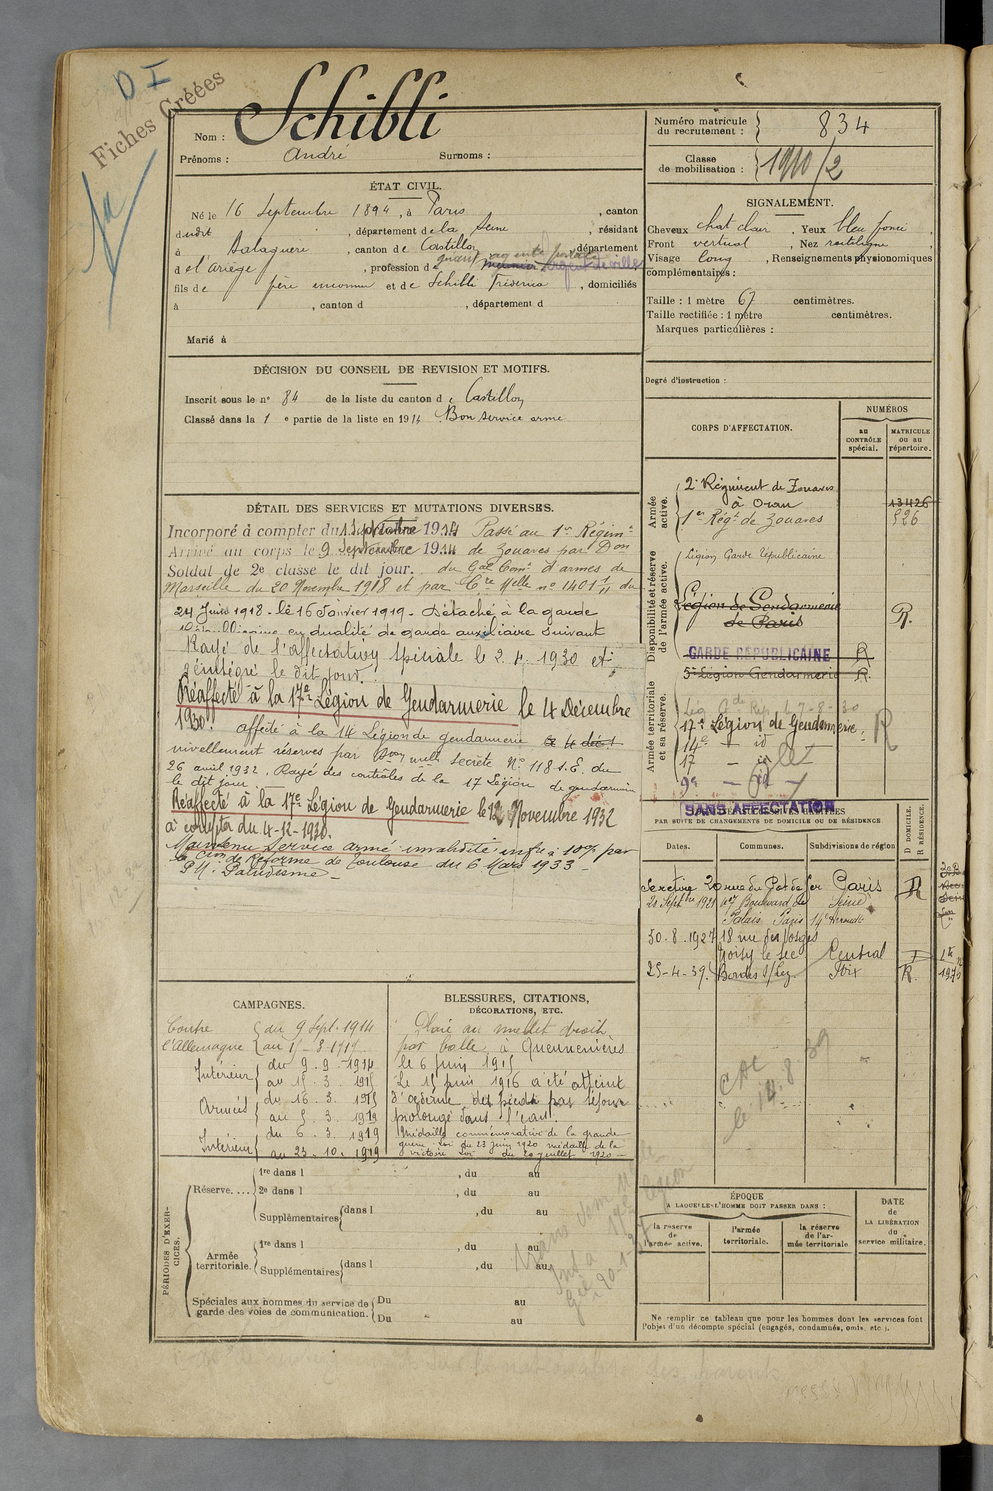 D I
Fiches Créées
Nom : Schibli
Prénoms : André Surnoms :
Numéro matricule du recrutement : 834
Classe de mobilisation : 1910/2
ÉTAT CIVIL.
Né le 16 Septembre 1894, à Paris, canton
dudit, département de la Seine, résidant
à Balaguères, canton de Castillon, département
d e l'Ariège, profession de
fils de père inconnu et de Schibli, domiciliés
à , canton d , département d
Marié à
SIGNALEMENT.
Cheveux chat clair. Yeux bleu foncé
Front vertical, Nez rectiligne
Visage long, Renseignements physionomiques
complémentaires :
Taille : 1 mètre 67 centimètres.
Taille rectifiée : 1 mètre centimètres.
Marques particulières :
Degré d'instruction :
DÉCISION DU CONSEIL DE REVISION ET MOTIFS.
Inscrit sous le n° 84 de la liste du canton de Castillon
Classé dans la 1 e partie de la liste en 1914 Bon service armé
DÉTAIL DES SERVICES ET MUTATIONS DIVERSES.
Incorporé à compter du 1 Septembre 1914 Passé au 1er Régimt
Arrivé au corps le 9 Septembre 1914 de Zouaves par Don
Soldat de 2e classe le dit jour. du Gal Comt d'armes de
Marseille du 20 Novembre 1918 et par Cre Melle n° 1401 du
24 Juin 1918 - le 16 Janvier 1919 - Détaché à la garde
en qualité de garde auxiliaire suivant
Rayé de l'affectation spéciale le 2.4.1930 et
réintégré le dit jour.
Réaffecté à la 17e Légion de Gendarmerie le 4 Décembre
1930. affecté à la 14 Légion de gendarmerie le 4 déct
nivellement réserves par Don melle secrète N° 1181.E. du
26 avril 1932. Rayé des contrôles de la 17 Légion de gendarmerie
le dit jour
Réaffecté à la 17e Légion de Gendarmerie le 12 Novembre 1932
à compter du 4-12-1930.
Maintenu Service armé invalidité infre à 10% par
la Con de Réforme de Toulouse du 6 Mars 1933 -
P.M. Paludisme -
CORPS D'AFFECTATION.
NUMÉROS
au CONTRÔLE spécial.
MATRICULE ou au répertoire.
Armée active.
2e Régiment de Zouaves
à Oran 13426
1er Régt de Zouaves 526
Disponibilité et réserve de l'armée active.
Légion Garde Républicaine
Légion de Gendarmerie
de Paris R.
GARDE RÉPUBLICAINE R
5e Légion Gendarmerie R.
Armée territoriale et sa réserve.
Leg Gde Rep. le 7-8-30
17e Légion de Gendarmerie. R
14e - id
17 - id
9e - id -
SANS AFFECTATION
PAR SUITE DE CHANGEMENTS DE DOMICILE OU DE RÉSIDENCE
Dates. Communes. Subdivisions de région
D DOMICILE. R RÉSIDENCE.
20 rue du Pot de fer Paris R
20 Septbre 1921 Boulevard du Seine
Palais Paris 14e
30.8.1927 18 rue des Vosges
Noisy le Sec Central
25-4-39. Bordes s/Lez Foix R.
CAMPAGNES.
Contre l'Allemagne du 9 Sept. 1914
Intérieur du 9-9-1914
au 15.3.1915
Armées du 16.3.1915
au 5.3.1919
Intérieur du 6.3.1919
au 23.10.1919
BLESSURES, CITATIONS,
DÉCORATIONS, ETC.
Plaie au mollet droit
par balle à Quennevières
le 6 juin 1915
Le 15 juin 1916 a été atteint
d'œdème des pieds par séjour
prolongé dans l'eau.
Médaille commémorative de la grande
guerre Loi du 23 juin 1920 médaille de la
victoire Loi du 20 juillet 1920 -
CAC
le 14.8.39
PÉRIODES D'EXERCICES.
Réserve.... 1re dans l , du au
2e dans l , du au
Supplémentaires dans l , du au
Armée territoriale. 1re dans l , du au
Supplémentaires dans l , du au
Spéciales aux hommes du service de garde des voies de communication. Du au
Du au
ÉPOQUE
À LAQUELLE L'HOMME DOIT PASSER DANS :
la réserve de l'armée active.
l'armée territoriale.
la réserve de l'armée territoriale
DATE de LA LIBÉRATION du service militaire.
Ne remplir ce tableau que pour les hommes dont les services font
l'objet d'un décompte spécial (engagés, condamnés, omis, etc.).